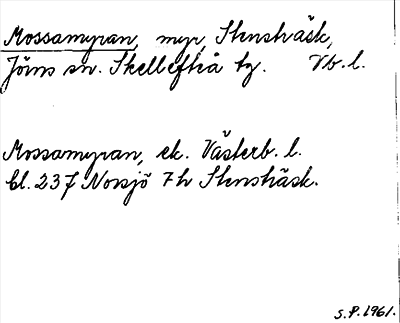 Mossamyran, myr, Stensträsk,
Jörns sn. Skellefteå tg. Vb. l.
Mossamyran, ek. Västerb. l.
bl. 237 Norsjö 7h Stensträsk.
S.P. 1961.